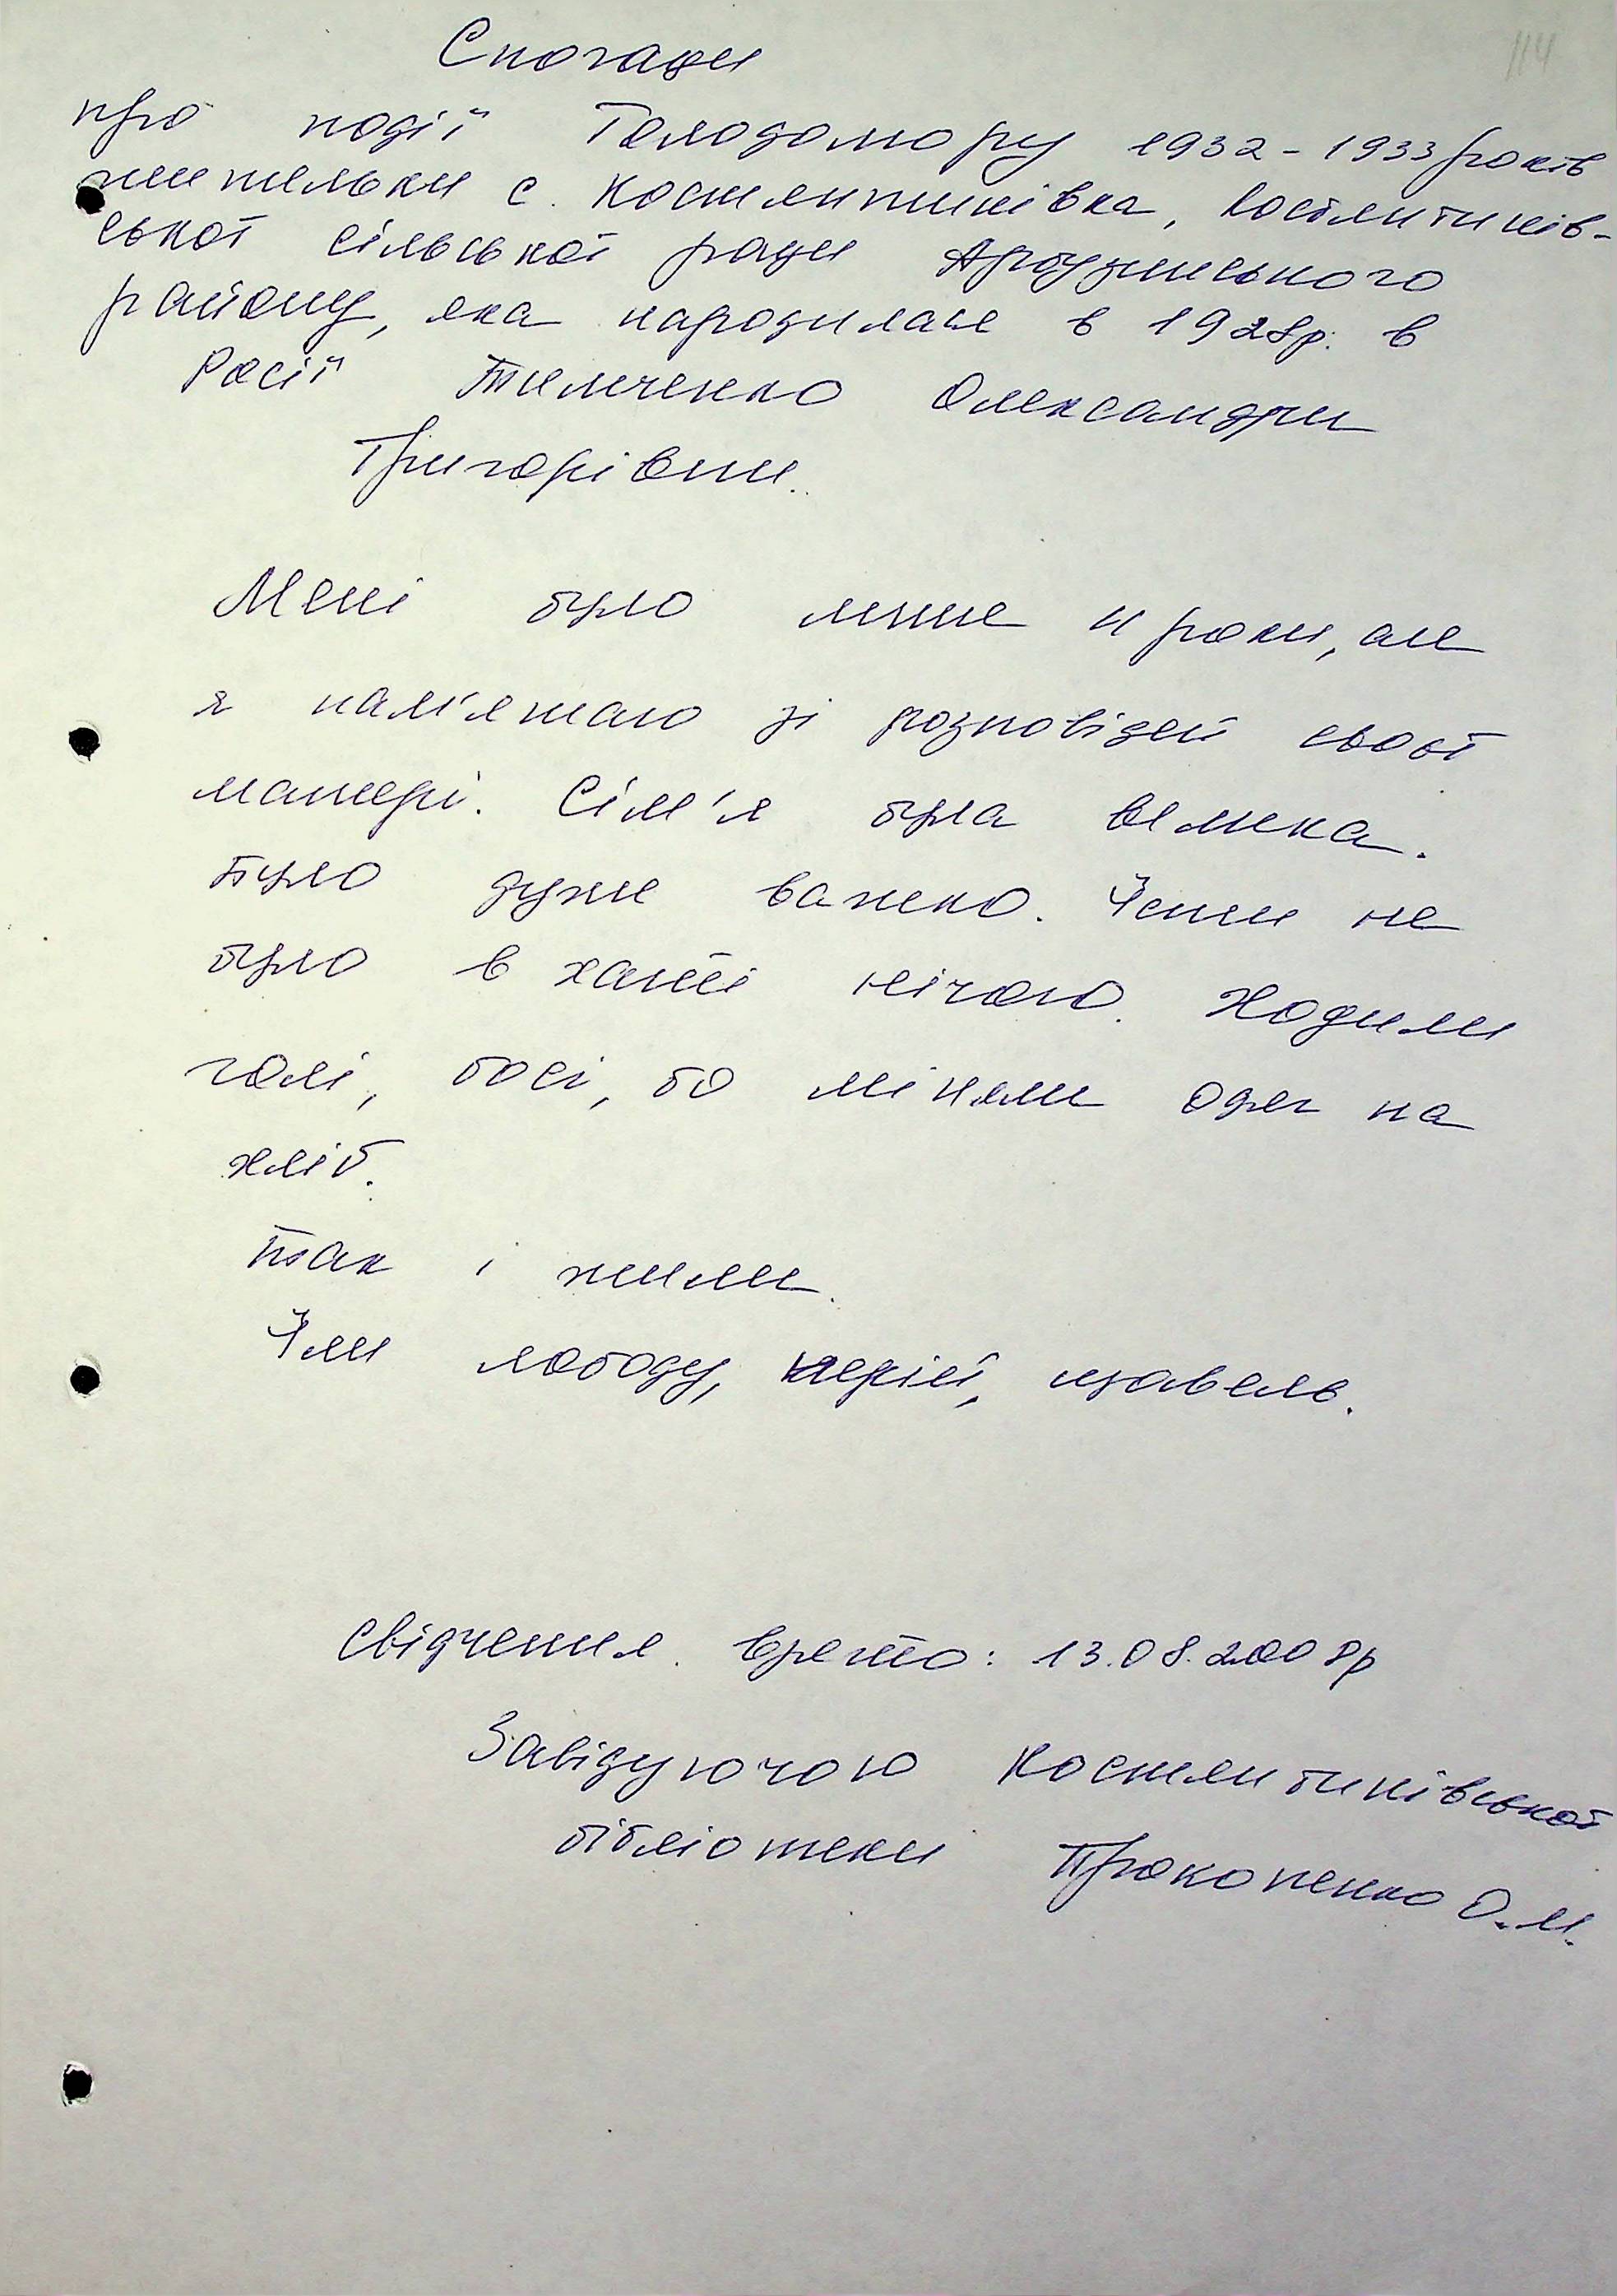 114
Спогади
про події Голодомору 1932-1933 років
жительки с. Костянтинівка, Костянтинів-
ської сільської ради Арбузинського
району, яка народилась в 1928р. в
Росії Тимченко Олександри
Григорівни.
Мені було лише 4 роки, але
я пам'ятаю зі розповідей своєї
матері. Сім'я була велика.
Було дуже важко. Їсти не
було в хаті нічого. Ходили
голі, босі, бо міняли одяг на
хліб.
Так і жили.
Їли лободу, курієй, щавель.
Свідчення взято: 13.08.2008р
Завідуючою Костянтинівської
бібліотеки Прокопенко О.М.